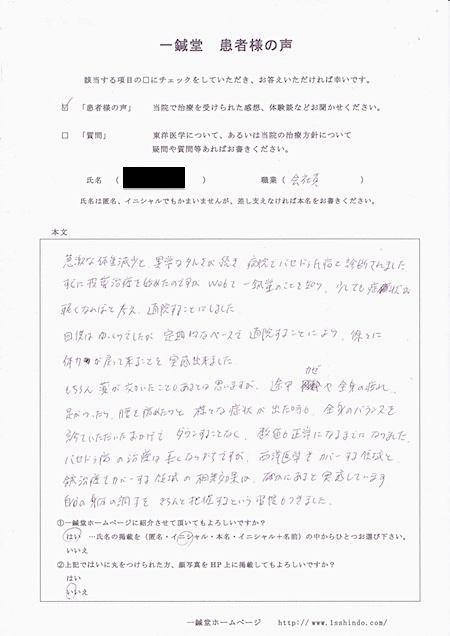 一鍼堂 患者様の声
該当する項目の□にチェックをしていただき、お答えいただければ幸いです。
☑ 「患者様の声」 当院で治療を受けられた感想、体験談などお聞かせください。
□ 「質問」 東洋医学について、あるいは当院の治療方針について
疑問や質問等あればお書きください。
氏名 （ ） 職業（ 会社員 ）
氏名は匿名、イニシャルでもかまいませんが、差し支えなければ本名をお書きください。
本文
急激な体重減少と、異常な が続き 病院でバセドウ氏病と診断されました
すぐに投薬治療を始めたのですが Webで一鍼堂のことを知り、少しでも症状が
軽くなればと考え、通院することにしました。
回復はゆっくりでしたが 定期的なペースで通院することにより、徐々に
体力が戻って来ることを実感出来ました。
もちろん薬が効いたこともあるとは思いますが、途中 カゼ や全身の疲れ、
足がつったり、腰を痛めたりと 様々な症状が出た時も、全身のバランスを
診ていただいたおかげで ダウンすることなく、数値も正常になるまでになりました。
バセドウ病の治療は長くなりそうですが、西洋医学でカバーする領域と
鍼治療でカバーする領域の相乗効果は、確かにあると実感しています
自分の身体の調子を きちんと把握するという習慣もつきました。
①一鍼堂ホームページに紹介させて頂いてもよろしいですか？
はい …氏名の掲載を（匿名・イニシャル・本名・イニシャル＋名前）の中からひとつお選び下さい。
いいえ
②上記ではいに丸をつけられた方、顔写真をHP上に掲載してもよろしいですか？
はい
いいえ
一鍼堂ホームページ http://www.1sshindo.com/